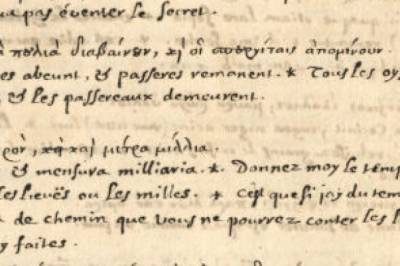 pas éventer le secret.
πολιὰ διαβαίνουν, καὶ οἱ σπουργίται ἀπομένουν.
es abeunt, & passeres remanent. * Tous les oy
, & les passereaux demeurent.
ρὸν, καὶ μέτρα μίλλια.
& mensura milliaria. * Donnez moy le temp
les lieuës ou les milles. * C'est que si j'ay du tem
* de chemin que vous ne pourrez conter les l
y faites.